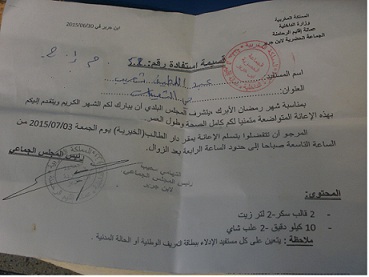 المملكة المغربية
وزارة الداخلية
عمالة إقليم الرحامنة
الجماعة الحضرية لابن جرير
ابن جرير في 2015/06/30
قسيمة استفادة رقم:
اسم المستفيد: عبد اللطيف
العنوان:
بمناسبة شهر رمضان الأبرك يتشرف المجلس البلدي أن يبارك لكم الشهر الكريم ويتقدم إليكم
بهذه الإعانة المتواضعة متمنيا لكم كامل الصحة وطول العمر.
المرجو أن تتفضلوا بتسلم الإعانة بمقر دار الطالب (الخيرية) يوم الجمعة 2015/07/03 من
الساعة التاسعة صباحا إلى حدود الساعة الرابعة بعد الزوال.
رئيس المجلس الجماعي
رئيس المجلس الجماعي
لابن جرير
المحتوى:
- 2 قالب سكر- 2 لتر زيت
- 10 كيلو دقيق - 2 علب شاي
ملاحظة : يتعين على كل مستفيد الإدلاء ببطاقة التعريف الوطنية أو الحالة المدنية .